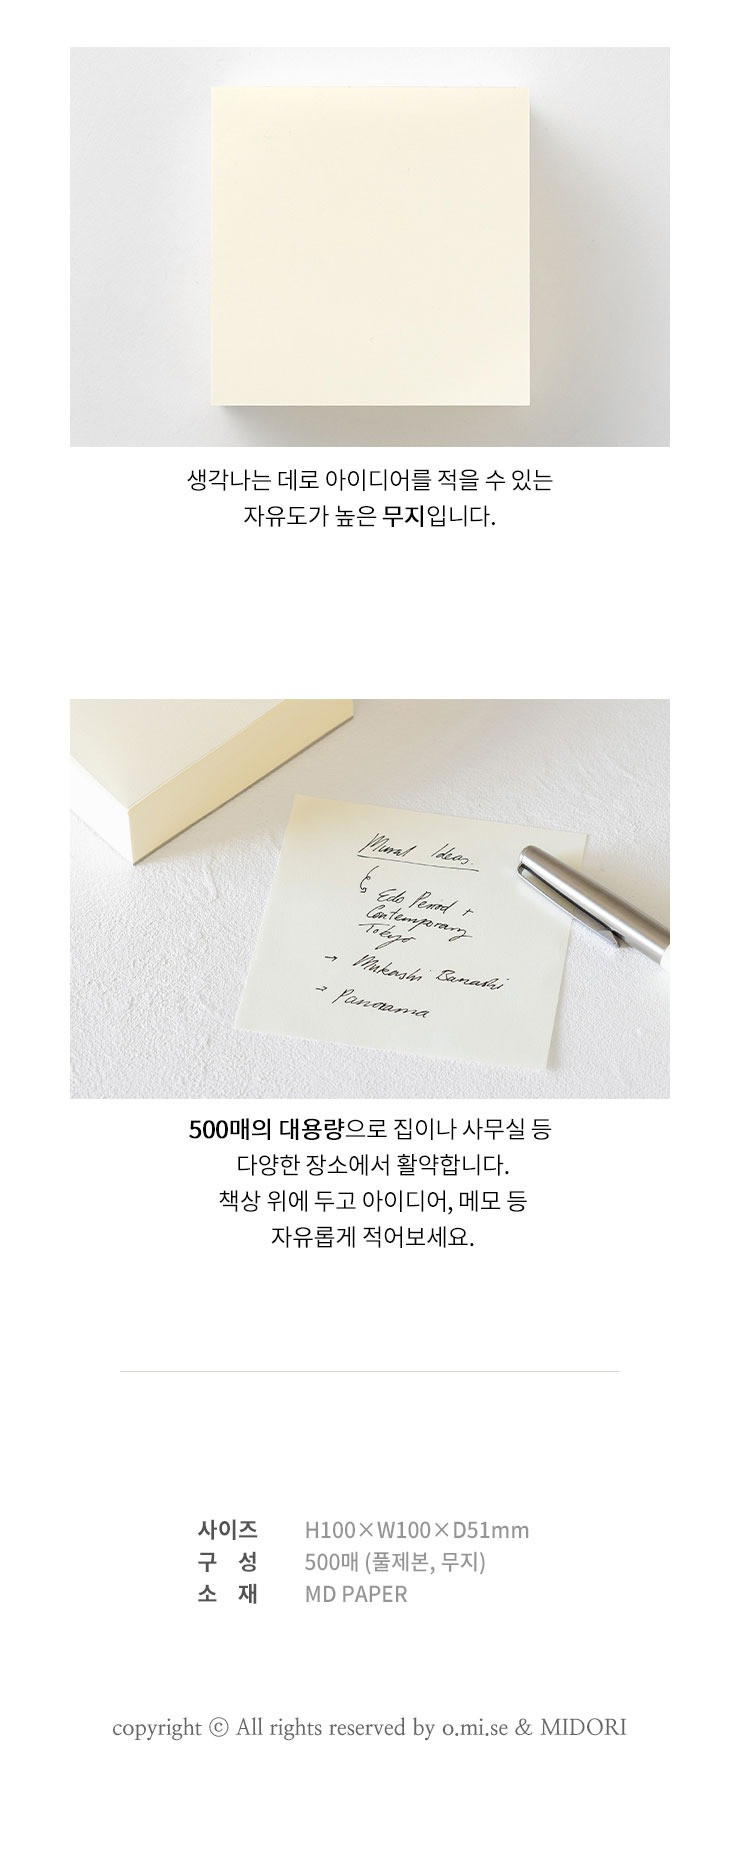 생각나는 데로 아이디어를 적을 수 있는
자유도가 높은 무지입니다.
Mural Ideas.
Edo Period +
Contemporary
Tokyo
→ Mukashi Banashi
→ Panorama
500매의 대용량으로 집이나 사무실 등
다양한 장소에서 활약합니다.
책상 위에 두고 아이디어, 메모 등
자유롭게 적어보세요.
사이즈 H100×W100×D51mm
구 성 500매 (풀제본, 무지)
소 재 MD PAPER
copyright ⓒ All rights reserved by o.mi.se & MIDORI